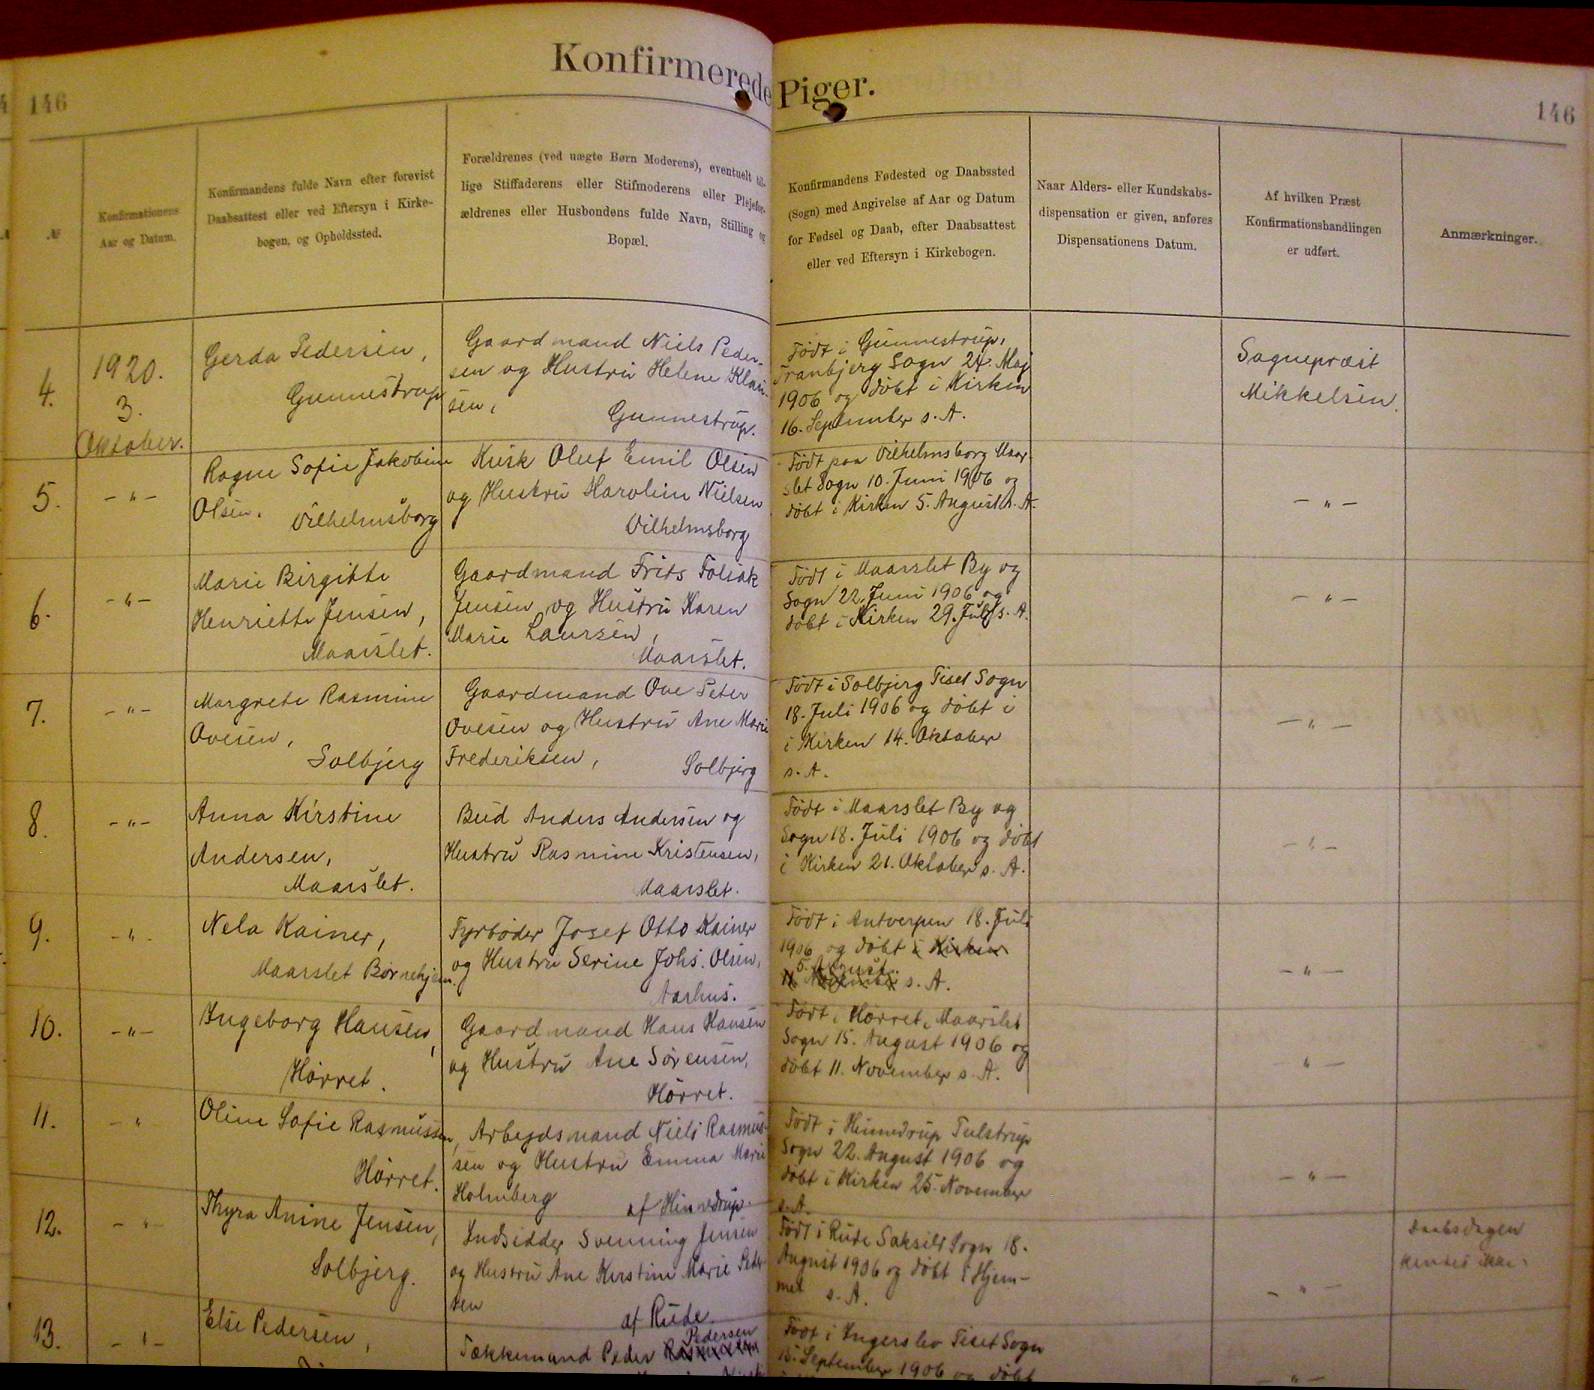 Konfirmerede Piger.
146
146
№
Konfirmationens
Aar og Datum.
Konfirmandens fulde Navn efter forevist
Daabsattest eller ved Eftersyn i Kirke-
bogen, og Opholdssted.
Forældrenes (ved uægte Børn Moderens), eventuelt til-
lige Stiffaderens eller Stifmoderens eller Plejefor-
ældrenes eller Husbondens fulde Navn, Stilling og
Bopæl.
Konfirmandens Fødested og Daabssted
(Sogn) med Angivelse af Aar og Datum
for Fødsel og Daab, efter Daabsattest
eller ved Eftersyn i Kirkebogen.
Naar Alders- eller Kundskabs-
dispensation er given, anføres
Dispensationens Datum.
Af hvilken Præst
Konfirmationshandlingen
er udført.
Anmærkninger.
4.
1920.
3.
Oktober.
Gerda Pedersen,
Gunnestrup
Gaardmand Niels Peder-
sen og Hustru Helene
sen,
Gunnestrup.
Født i Gunnestrup,
Tranbjerg Sogn 24. Maj
1906 og døbt i Kirken
16. September s. A.
Sognepræst
Mikkelsen.
5.
-"-
Ragne Sofie Jakobine
Olsen. Vilhelmsborg
Kusk Oluf Emil Olsen
og Hustru Karoline Nielsen
Vilhelmsborg
Født paa Vilhelmsborg Maar-
slet Sogn 10. Juni 1906 og
døbt i Kirken 5. August s. A.
-"-
6.
-"-
Marie Birgitte
Henriette Jensen,
Maarslet.
Gaardmand Frits
Jensen og Hustru Karen
Marie Laursen,
Maarslet.
Født i Maarslet By og
Sogn 22. Juni 1906 og
døbt i Kirken 29. Juli s. A.
-"-
7.
-"-
Margrete Rasmine
Ovesen,
Solbjerg
Gaardmand Ove Peter
Ovesen og Hustru Ane Marie
Frederiksen,
Solbjerg
Født i Solbjerg Tiset Sogn
18. Juli 1906 og døbt i
i Kirken 14. Oktober
s. A.
-"-
8.
-"-
Anna Kirstine
Andersen,
Maarslet.
Bud Anders Andersen og
Hustru Rasmine Kristensen,
Maarslet.
Født i Maarslet By og
Sogn 18. Juli 1906 og døbt
i Kirken 21. Oktober s. A.
-"-
9.
-"-
Nela Kainer,
Maarslet Børnehjem.
Fyrbøder Josef Otto Kainer
og Hustru Serine Johs. Olsen,
Aarhus.
Født i Antverpen 18. Juli
1906 og døbt i Kirken
5. August
s. A.
-"-
10.
-"-
Ingeborg Hansen,
Hørret.
Gaardmand Hans Hansen
og Hustru Ane Sørensen,
Hørret.
Født i Hørret, Maarslet
Sogn 15. August 1906 og
døbt 11. November s. A.
-"-
11.
-"
Oline Sofie Rasmussen,
Hørret.
Arbejdsmand Niels Rasmus-
sen og Hustru Emma Marie
Holmberg af Hinnedrup.
Født i Hinnedrup Tulstrup
Sogn 22. August 1906 og
døbt i Kirken 25. November
s. A.
-"-
12.
-"-
Thyra Anine Jensen,
Solbjerg.
Indsidder Svenning Jensen
og Hustru Ane Kirstine Marie Peder-
sen
af Rude.
Født i Rude Saksild Sogn 18.
August 1906 og døbt i Hjem-
met s. A.
-"-
Daabsdagen
kendes ikke.
13.
-"-
Else Pedersen,
Pedersen
Tækkemand Peder Rasmussen
Født i Ingerslev Tiset Sogn
15. September 1906 og døbt
-"-